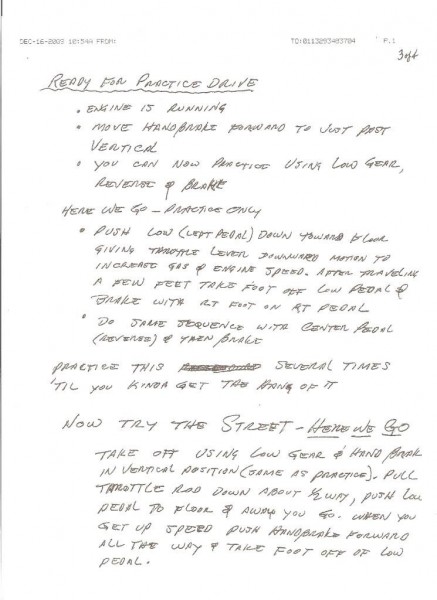 DEC-16-2009 10:54A FROM: TO:0113293483784 P.1
3 of 4
READY FOR PRACTICE DRIVE
• ENGINE IS RUNNING
• MOVE HANDBRAKE FORWARD TO JUST PAST
VERTICAL
• YOU CAN NOW PRACTICE USING LOW GEAR,
REVERSE & BRAKE
HERE WE GO - PRACTICE ONLY
• PUSH LOW (LEFT PEDAL) DOWN TOWARD FLOOR
GIVING THROTTLE LEVER DOWNWARD MOTION TO
INCREASE GAS & ENGINE SPEED. AFTER TRAVELING
A FEW FEET TAKE FOOT OFF LOW PEDAL &
BRAKE WITH RT FOOT ON RT PEDAL
• DO SAME SEQUENCE WITH CENTER PEDAL
(REVERSE) & THEN BRAKE
PRACTICE THIS SEVERAL TIMES
'TIL YOU KINDA GET THE HANG OF IT
NOW TRY THE STREET - HERE WE GO
TAKE OFF USING LOW GEAR & HAND BRAKE
IN VERTICAL POSITION (SAME AS PRACTICE). PULL
THROTTLE ROD DOWN ABOUT ½ WAY, PUSH LOW
PEDAL TO FLOOR & AWAY YOU GO. WHEN YOU
GET UP SPEED PUSH HANDBRAKE FORWARD
ALL THE WAY & TAKE FOOT OFF OF LOW
PEDAL.